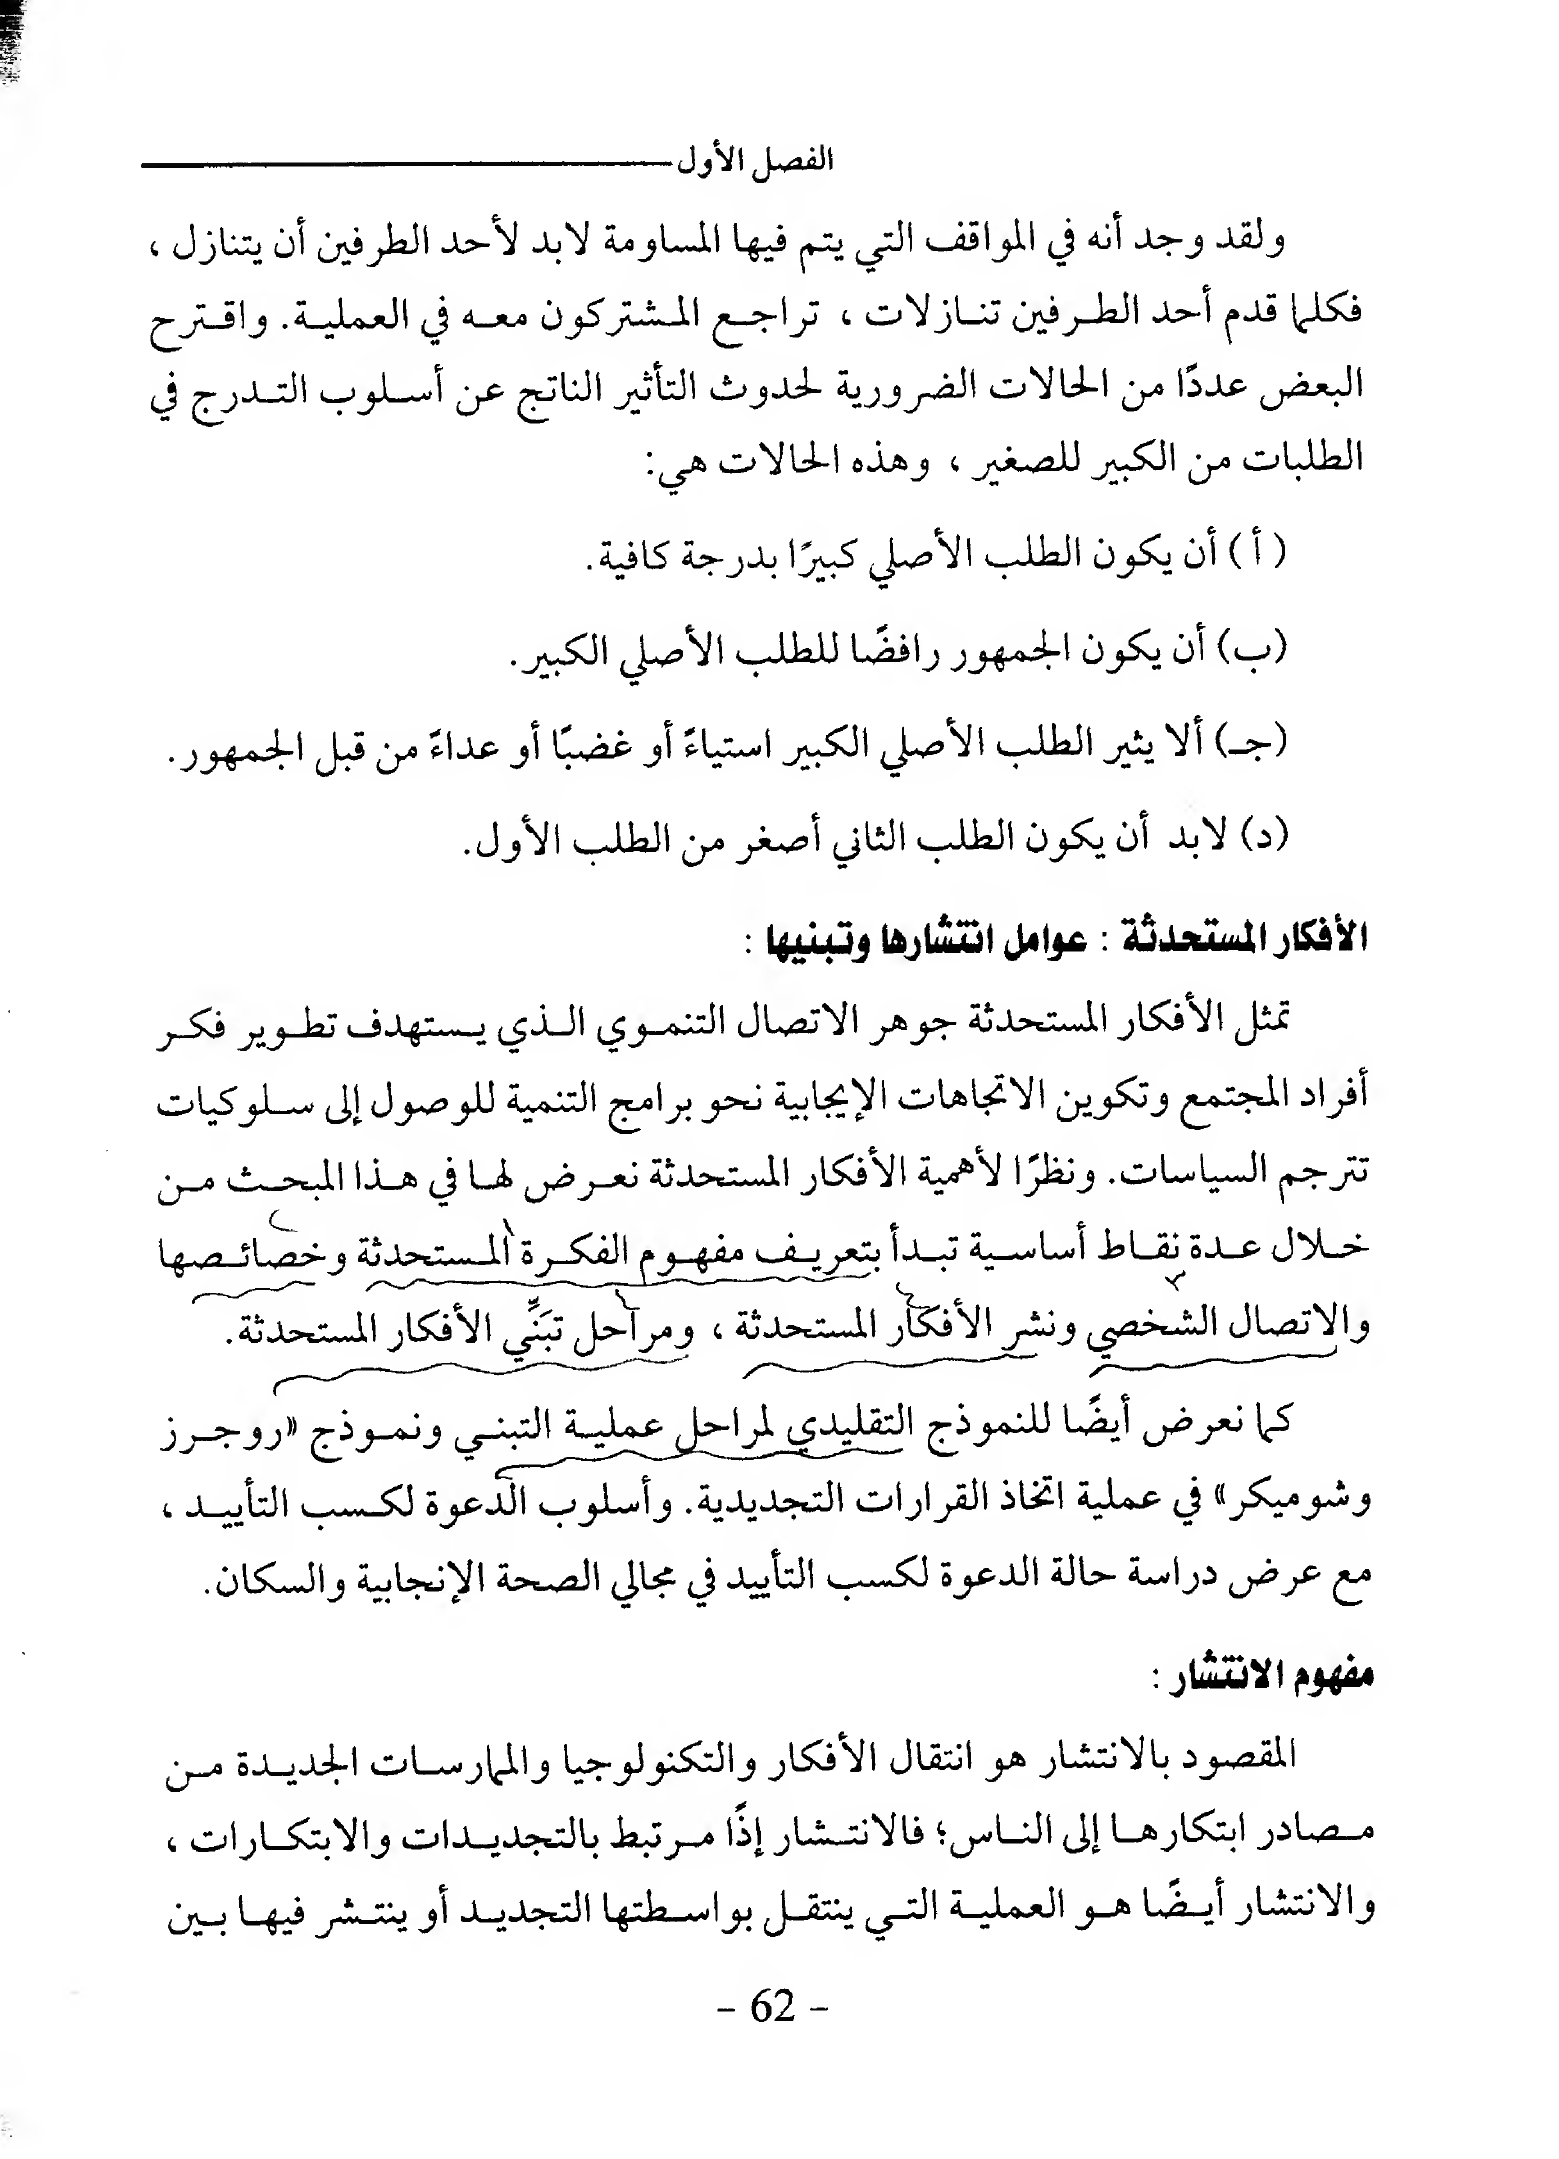 الفصل الأول
ولقد وجد أنه في المواقف التي يتم فيها المساومة لابد لأحد الطرفين أن يتنازل ،
فكلما قدم أحد الطرفين تنازلات ، تراجع المشتركون معه في العملية. واقترح
البعض عددًا من الحالات الضرورية لحدوث التأثير الناتج عن أسلوب التدرج في
الطلبات من الكبير للصغير ، وهذه الحالات هي:
( أ ) أن يكون الطلب الأصلي كبيرًا بدرجة كافية.
(ب) أن يكون الجمهور رافضًا للطلب الأصلي الكبير.
(جـ) ألا يثير الطلب الأصلي الكبير استياءً أو غضبًا أو عداءً من قبل الجمهور.
(د) لابد أن يكون الطلب الثاني أصغر من الطلب الأول.
الأفكار المستحدثة : عوامل انتشارها وتبنيها :
تمثل الأفكار المستحدثة جوهر الاتصال التنموي الذي يستهدف تطوير فكر
أفراد المجتمع وتكوين الاتجاهات الإيجابية نحو برامج التنمية للوصول إلى سلوكيات
تترجم السياسات. ونظرًا لأهمية الأفكار المستحدثة نعرض لها في هذا المبحث من
خلال عدة نقاط أساسية تبدأ بتعريف مفهوم الفكرة المستحدثة وخصائصها
والاتصال الشخصي ونشر الأفكار المستحدثة ، ومراحل تبَنِّي الأفكار المستحدثة.
كما نعرض أيضًا للنموذج التقليدي لمراحل عملية التبني ونموذج «روجرز
وشوميكر» في عملية اتخاذ القرارات التجديدية. وأسلوب الدعوة لكسب التأييد ،
مع عرض دراسة حالة الدعوة لكسب التأييد في مجالي الصحة الإنجابية والسكان.
مفهوم الانتشار :
المقصود بالانتشار هو انتقال الأفكار والتكنولوجيا والممارسات الجديدة من
مصادر ابتكارها إلى الناس؛ فالانتشار إذًا مرتبط بالتجديدات والابتكارات ،
والانتشار أيضًا هو العملية التي ينتقل بواسطتها التجديد أو ينتشر فيها بين
- 62 -